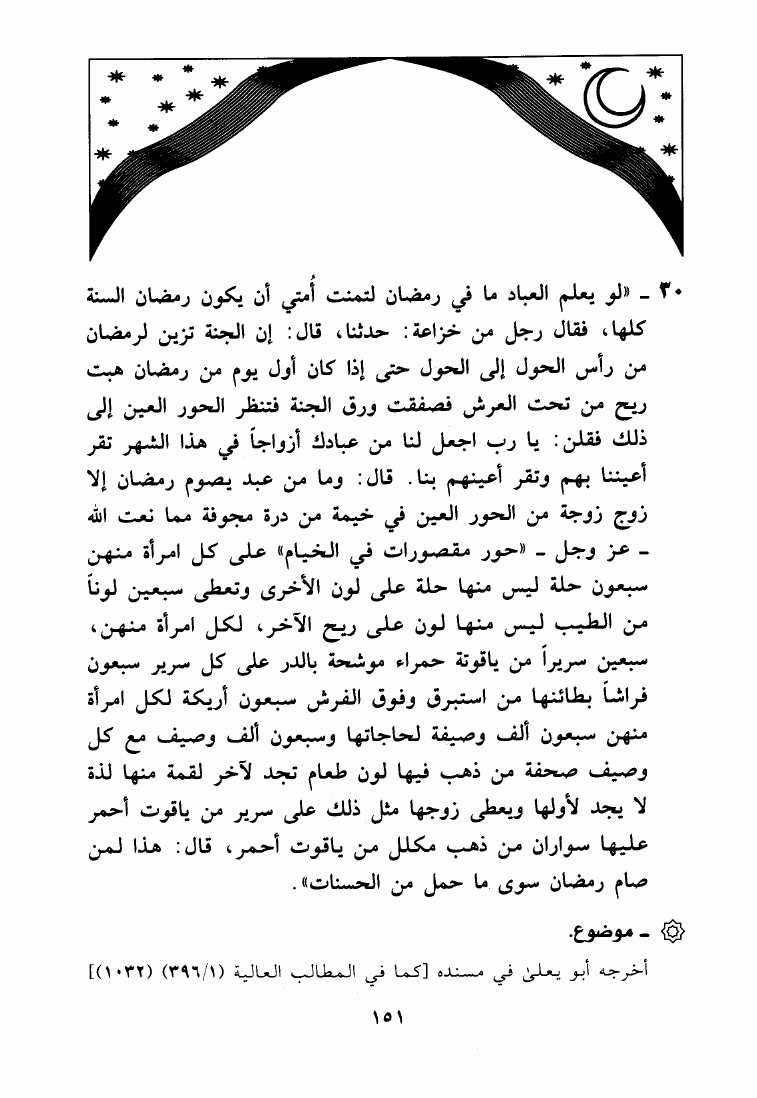 ٣٠ ـ «لو يعلم العباد ما في رمضان لتمنت أُمتي أن يكون رمضان السنة
كلها، فقال رجل من خزاعة: حدثنا، قال: إن الجنة تزين لرمضان
من رأس الحول إلى الحول حتى إذا كان أول يوم من رمضان هبت
ريح من تحت العرش فصفقت ورق الجنة فتنظر الحور العين إلى
ذلك فقلن: يا رب اجعل لنا من عبادك أزواجاً في هذا الشهر تقر
أعيننا بهم وتقر أعينهم بنا. قال: وما من عبد يصوم رمضان إلا
زوج زوجة من الحور العين في خيمة من درة مجوفة مما نعت الله
ـ عز وجل ـ «حور مقصورات في الخيام» على كل امرأة منهن
سبعون حلة ليس منها حلة على لون الأخرى وتعطى سبعين لوناً
من الطيب ليس منها لون على ريح الآخر، لكل امرأة منهن،
سبعين سريراً من ياقوتة حمراء موشحة بالدر على كل سرير سبعون
فراشاً بطائنها من استبرق وفوق الفرش سبعون أريكة لكل امرأة
منهن سبعون ألف وصيفة لحاجاتها وسبعون ألف وصيف مع كل
وصيف صحفة من ذهب فيها لون طعام تجد لآخر لقمة منها لذة
لا يجد لأولها ويعطى زوجها مثل ذلك على سرير من ياقوت أحمر
عليها سواران من ذهب مكلل من ياقوت أحمر، قال: هذا لمن
صام رمضان سوى ما حمل من الحسنات».
ـ موضوع.
أخرجه أبو يعلىٰ في مسنده [كما في المطالب العالية (٣٩٦/١) (١٠٣٢)]
١٥١